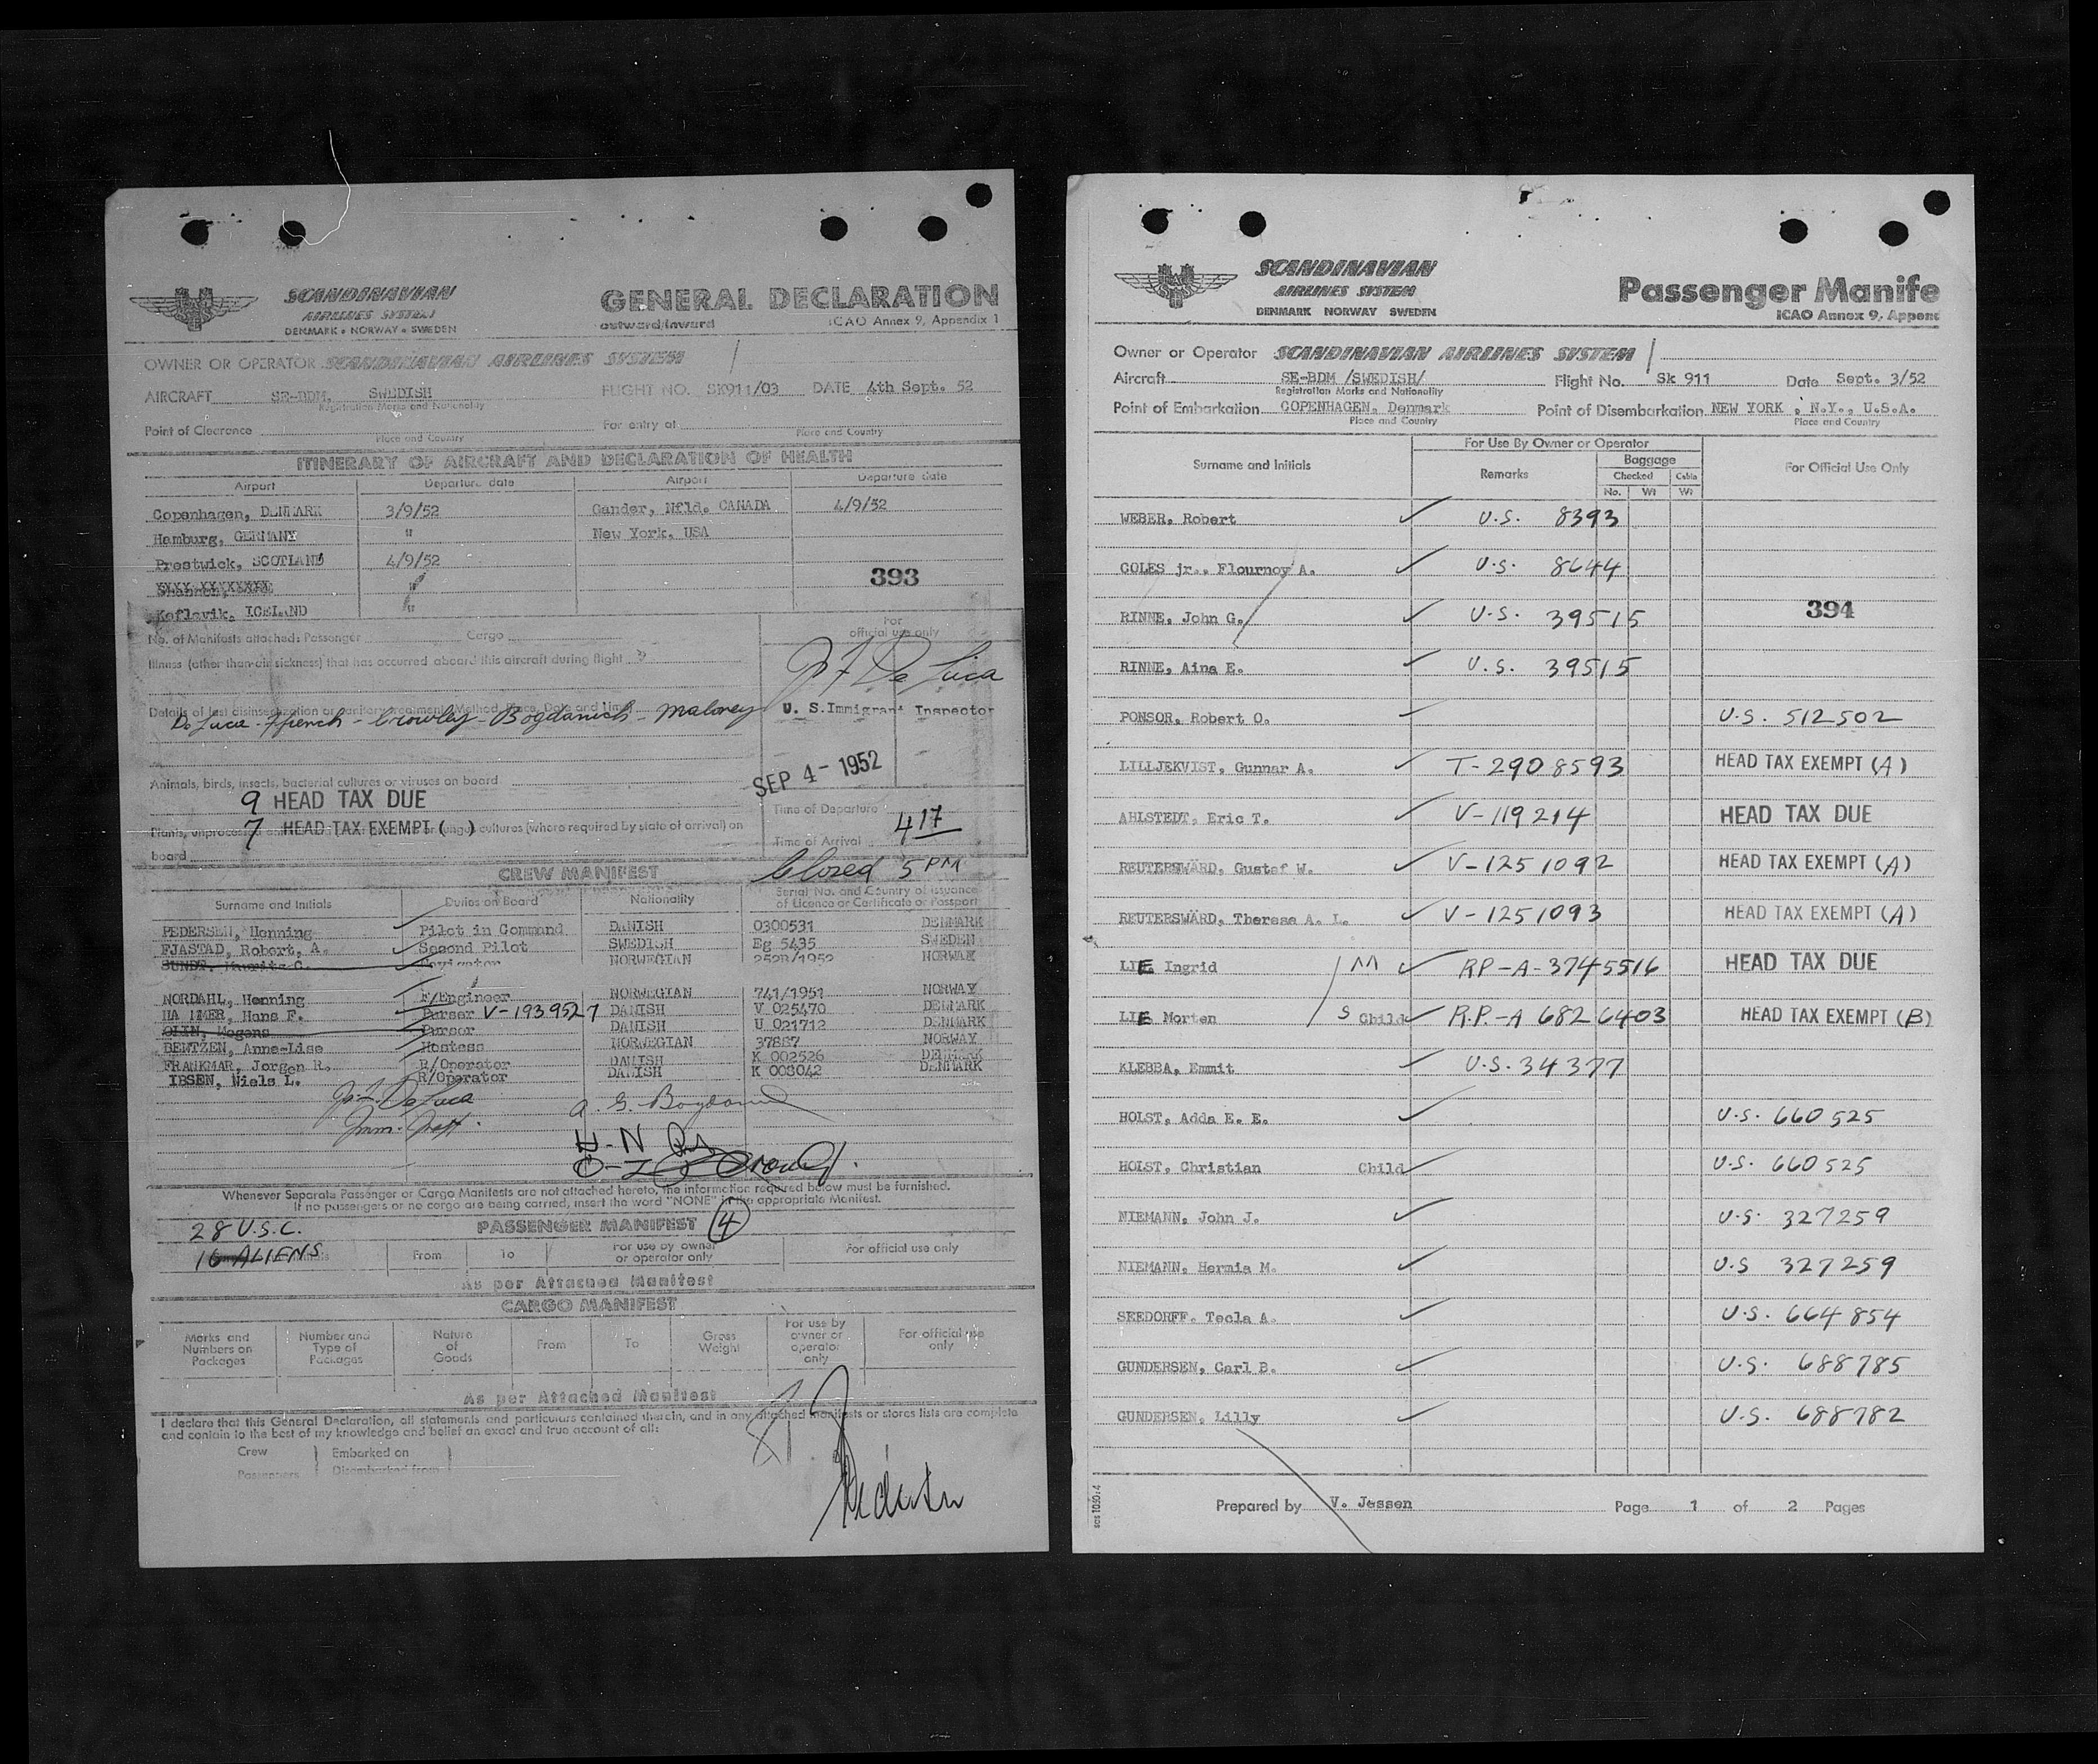 SCANDINAVIAN
AIRLINES SYSTEM
DENMARK • NORWAY • SWEDEN
GENERAL DECLARATION
outward/inward ICAO Annex 9, Appendix 1
OWNER OR OPERATOR SCANDINAVIAN AIRLINES SYSTEM
AIRCRAFT SE-BDM, SWEDISH FLIGHT NO. SK911/03 DATE 4th Sept. 52
Registration Marks and Nationality
Point of Clearance For entry at
Place and Country Place and Country
ITINERARY OF AIRCRAFT AND DECLARATION OF HEALTH
Airport Departure date Airport Departure date
Copenhagen, DENMARK 3/9/52 Gander, Nfld. CANADA 4/9/52
Hamburg, GERMANY " New York, USA
Prestwick, SCOTLAND 4/9/52
393
"
Keflavik, ICELAND "
No. of Manifests attached: Passenger Cargo
For
official use only
Illness (other than air sickness) that has occurred aboard this aircraft during flight
J F De Luca
U. S. Immigrant Inspector
Details of last disinsectization or sanitary treatment (Method, Place, Date and Time)
De Luca - Ffrench - Crowley - Bogdanich - Maloney
SEP 4 - 1952
Animals, birds, insects, bacterial cultures or viruses on board
9 HEAD TAX DUE
7 HEAD TAX EXEMPT ( )
Plants, unprocessed or fungi cultures (where required by state of arrival) on
board
Time of Departure
Time of Arrival 4 17
Closed 5 PM
CREW MANIFEST
Surname and Initials Duties on Board Nationality Serial No. and Country of issuance
of Licence or Certificate or Passport
PEDERSEN, Henning Pilot in Command DANISH 0300531 DENMARK
FJASTAD, Robert, A. Second Pilot SWEDISH Eg 5435 SWEDEN
SUNDT, Mauritz C. Navigator NORWEGIAN 252B/1952 NORWAY
NORDAHL, Henning F/Engineer NORWEGIAN 741/1951 NORWAY
HAMMER, Hans F. Purser V-1939527 DANISH V 025470 DENMARK
OLIN, Mogens Purser DANISH U 021712 DENMARK
BENTZEN, Anne-Lise Hostess NORWEGIAN 37887 NORWAY
FRANKMAR, Jorgen R. R/Operator DANISH K 002526 DENMARK
IBSEN, Niels L. R/Operator DANISH K 008042 DENMARK
J. F. De Luca
Imm. Insp.
Whenever Separate Passenger or Cargo Manifests are not attached hereto, the information required below must be furnished.
If no passengers or no cargo are being carried, insert the word "NONE" in the appropriate Manifest.
28 U.S.C. PASSENGER MANIFEST 4
16 ALIENS From To For use by owner
or operator only For official use only
As per Attached Manifest
CARGO MANIFEST
Marks and
Numbers on
Packages Number and
Type of
Packages Nature
of
Goods From To Gross
Weight For use by
owner or
operator
only For official use
only
As per Attached Manifest
I declare that this General Declaration, all statements and particulars contained therein, and in any attached manifests or stores lists are complete
and contain to the best of my knowledge and belief an exact and true account of all:
Crew Embarked on
Passengers Disembarked from
SCANDINAVIAN
AIRLINES SYSTEM
DENMARK NORWAY SWEDEN
Passenger Manife
ICAO Annex 9, Append
Owner or Operator SCANDINAVIAN AIRLINES SYSTEM
Aircraft SE-BDM /SWEDISH/ Flight No. Sk 911 Date Sept. 3/52
Registration Marks and Nationality
Point of Embarkation COPENHAGEN, Denmark Point of Disembarkation NEW YORK , N.Y., U.S.A.
Place and Country Place and Country
Surname and Initials For Use By Owner or Operator For Official Use Only
Remarks Baggage
Checked Cabin
No. Wt Wt
WEBER, Robert U.S. 8393
COLES jr., Flournoy A. U.S. 8644
394
RINNE, John G. U.S. 39515
RINNE, Aina E. U.S. 39515
PONSOR, Robert O. U.S. 512502
LILLJEKVIST, Gunnar A. T-2908593 HEAD TAX EXEMPT (A)
AHLSTEDT, Eric T. V-119214 HEAD TAX DUE
REUTERSWÄRD, Gustef W. V-1251092 HEAD TAX EXEMPT (A)
REUTERSWÄRD, Theresa A. L. V-1251093 HEAD TAX EXEMPT (A)
LIE Ingrid M RP-A-3745516 HEAD TAX DUE
LIE Morten S Child R.P.-A 6826403 HEAD TAX EXEMPT (B)
KLEBBA, Emmit U.S. 34377
HOLST, Adda E. E. U.S. 660525
HOLST, Christian Child U.S. 660525
NIEMANN, John J. U.S. 327259
NIEMANN, Hermia M. U.S 327259
SEEDORFF, Tecla A. U.S. 664854
GUNDERSEN, Carl B. U.S. 688785
GUNDERSEN, Lilly U.S. 688782
sas 1030:4
Prepared by V. Jessen Page 1 of 2 Pages